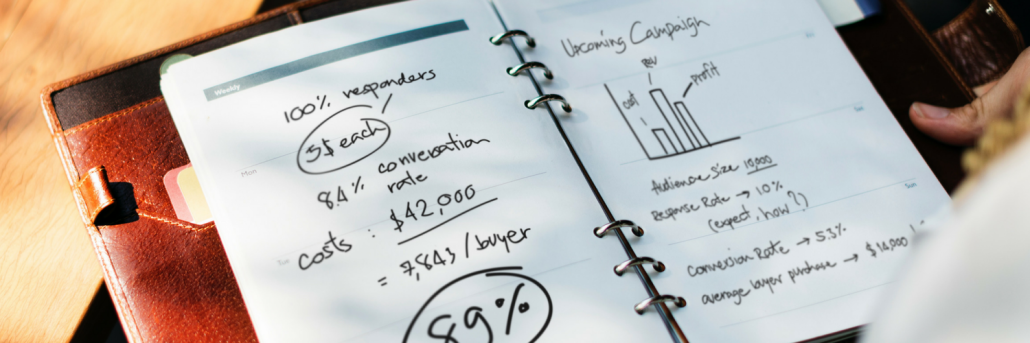 Weekly
100% responders
5$ each
8.4% conversation
rate
costs : $42,000
= 7,843 / buyer
89%
Mon
Upcoming Campaign
Rev
cost
Profit
Audience size 10,000
Response Rate → 10%
(expect, how?)
Conversion Rate → 5.3%
average buyer purchase → $14,000
Sun